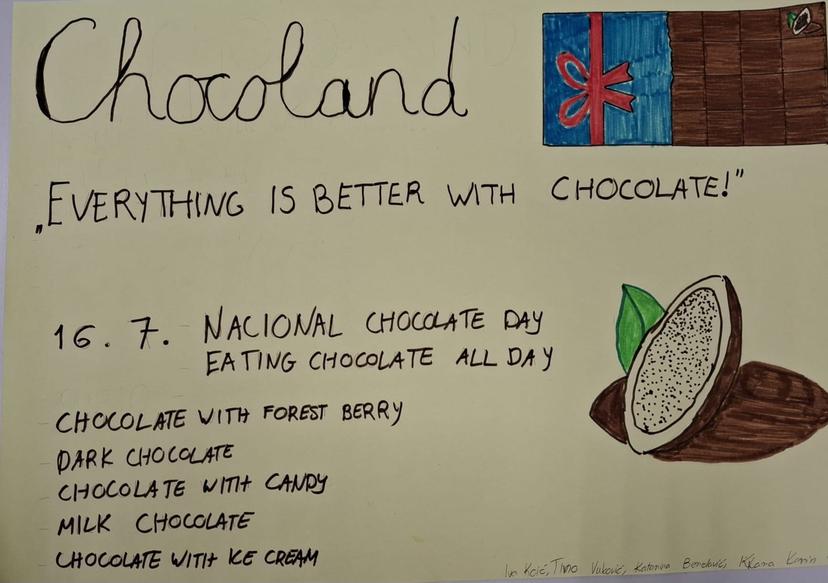 Chocoland
„EVERYTHING IS BETTER WITH CHOCOLATE!"
16. 7. NACIONAL CHOCOLATE DAY
EATING CHOCOLATE ALL DAY
CHOCOLATE WITH FOREST BERRY
DARK CHOCOLATE
CHOCOLATE WITH CANDY
MILK CHOCOLATE
CHOCOLATE WITH ICE CREAM
Tino Vuković, Katarina